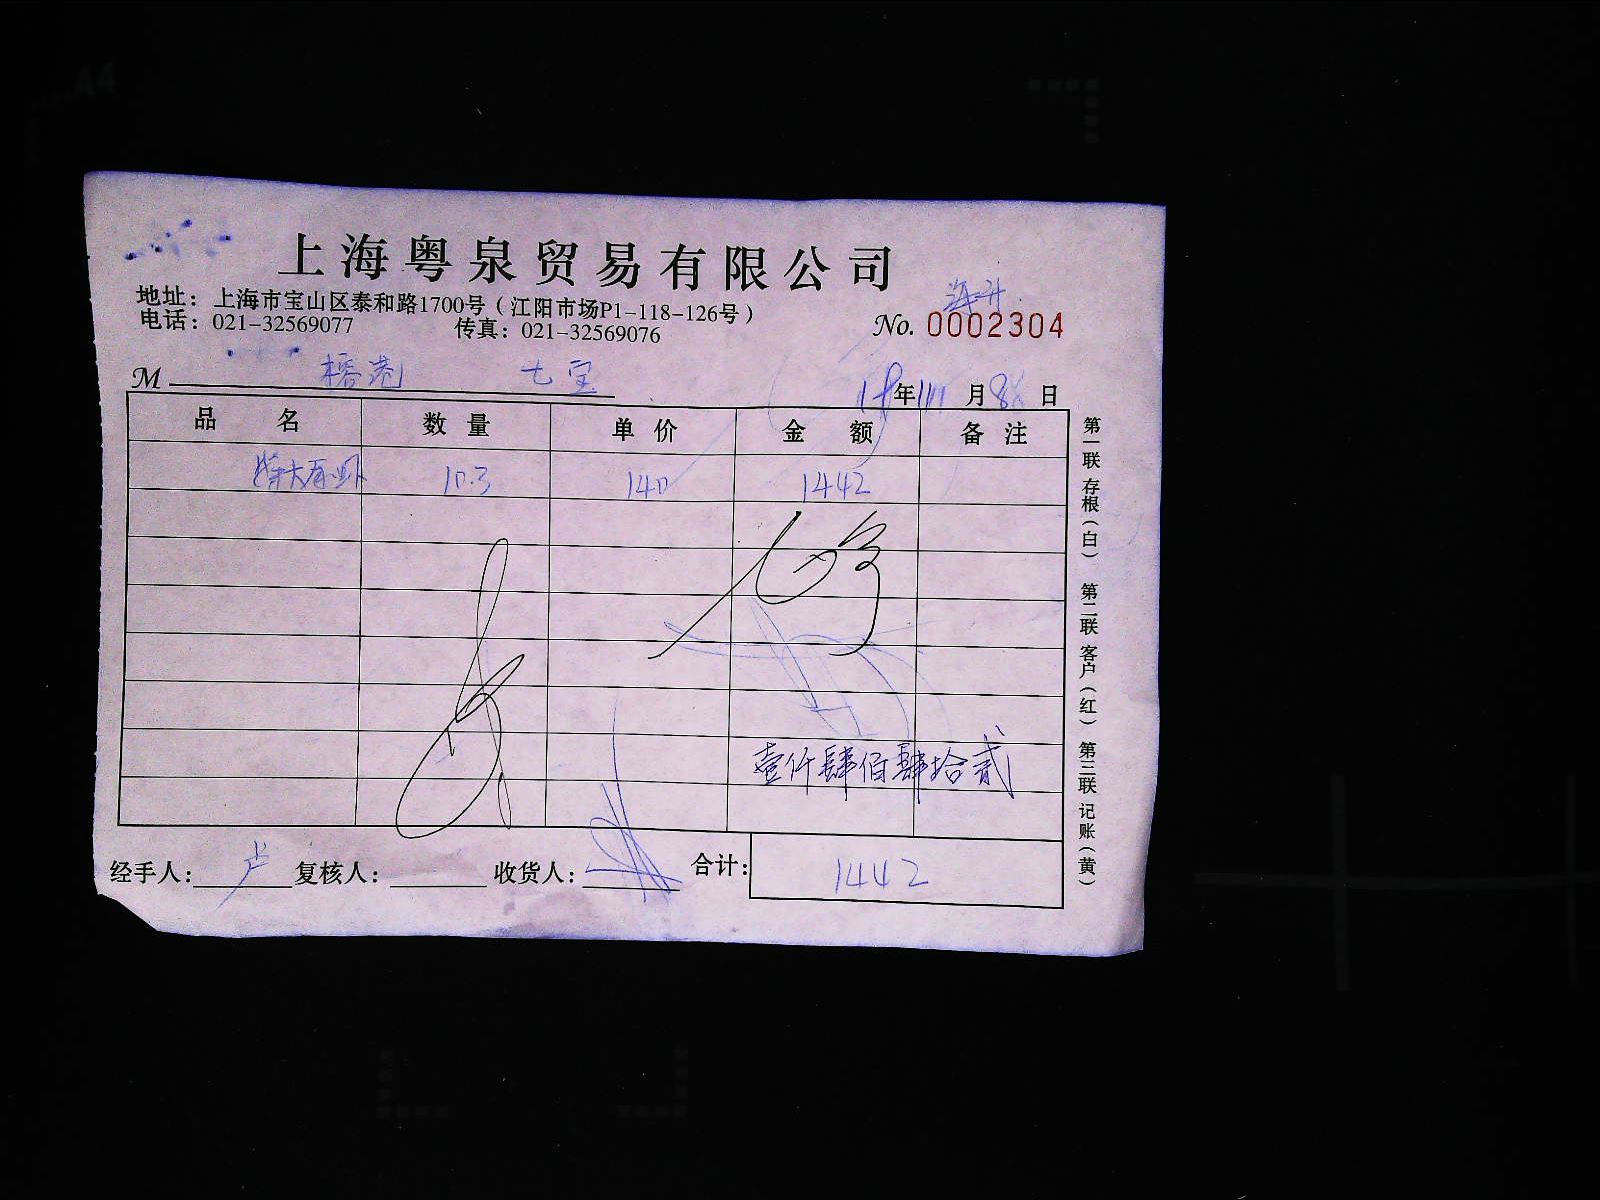 上海粤泉贸易有限公司
地址：上海市宝山区泰和路1700号（江阳市场P1-118-126号）
电话：021-32569077 传真：021-32569076
No. 0002304
M 榕港 七宝
年 月 日
品名 数量 单价 金额 备注
10.3 140 1442
壹仟肆佰肆拾贰
经手人：卢 复核人： 收货人： 合计：1442
第一联 存根（白） 第二联 客户（红） 第三联 记账（黄）